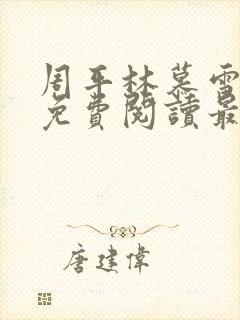 周平林慕雪
免費閱讀最
唐建偉